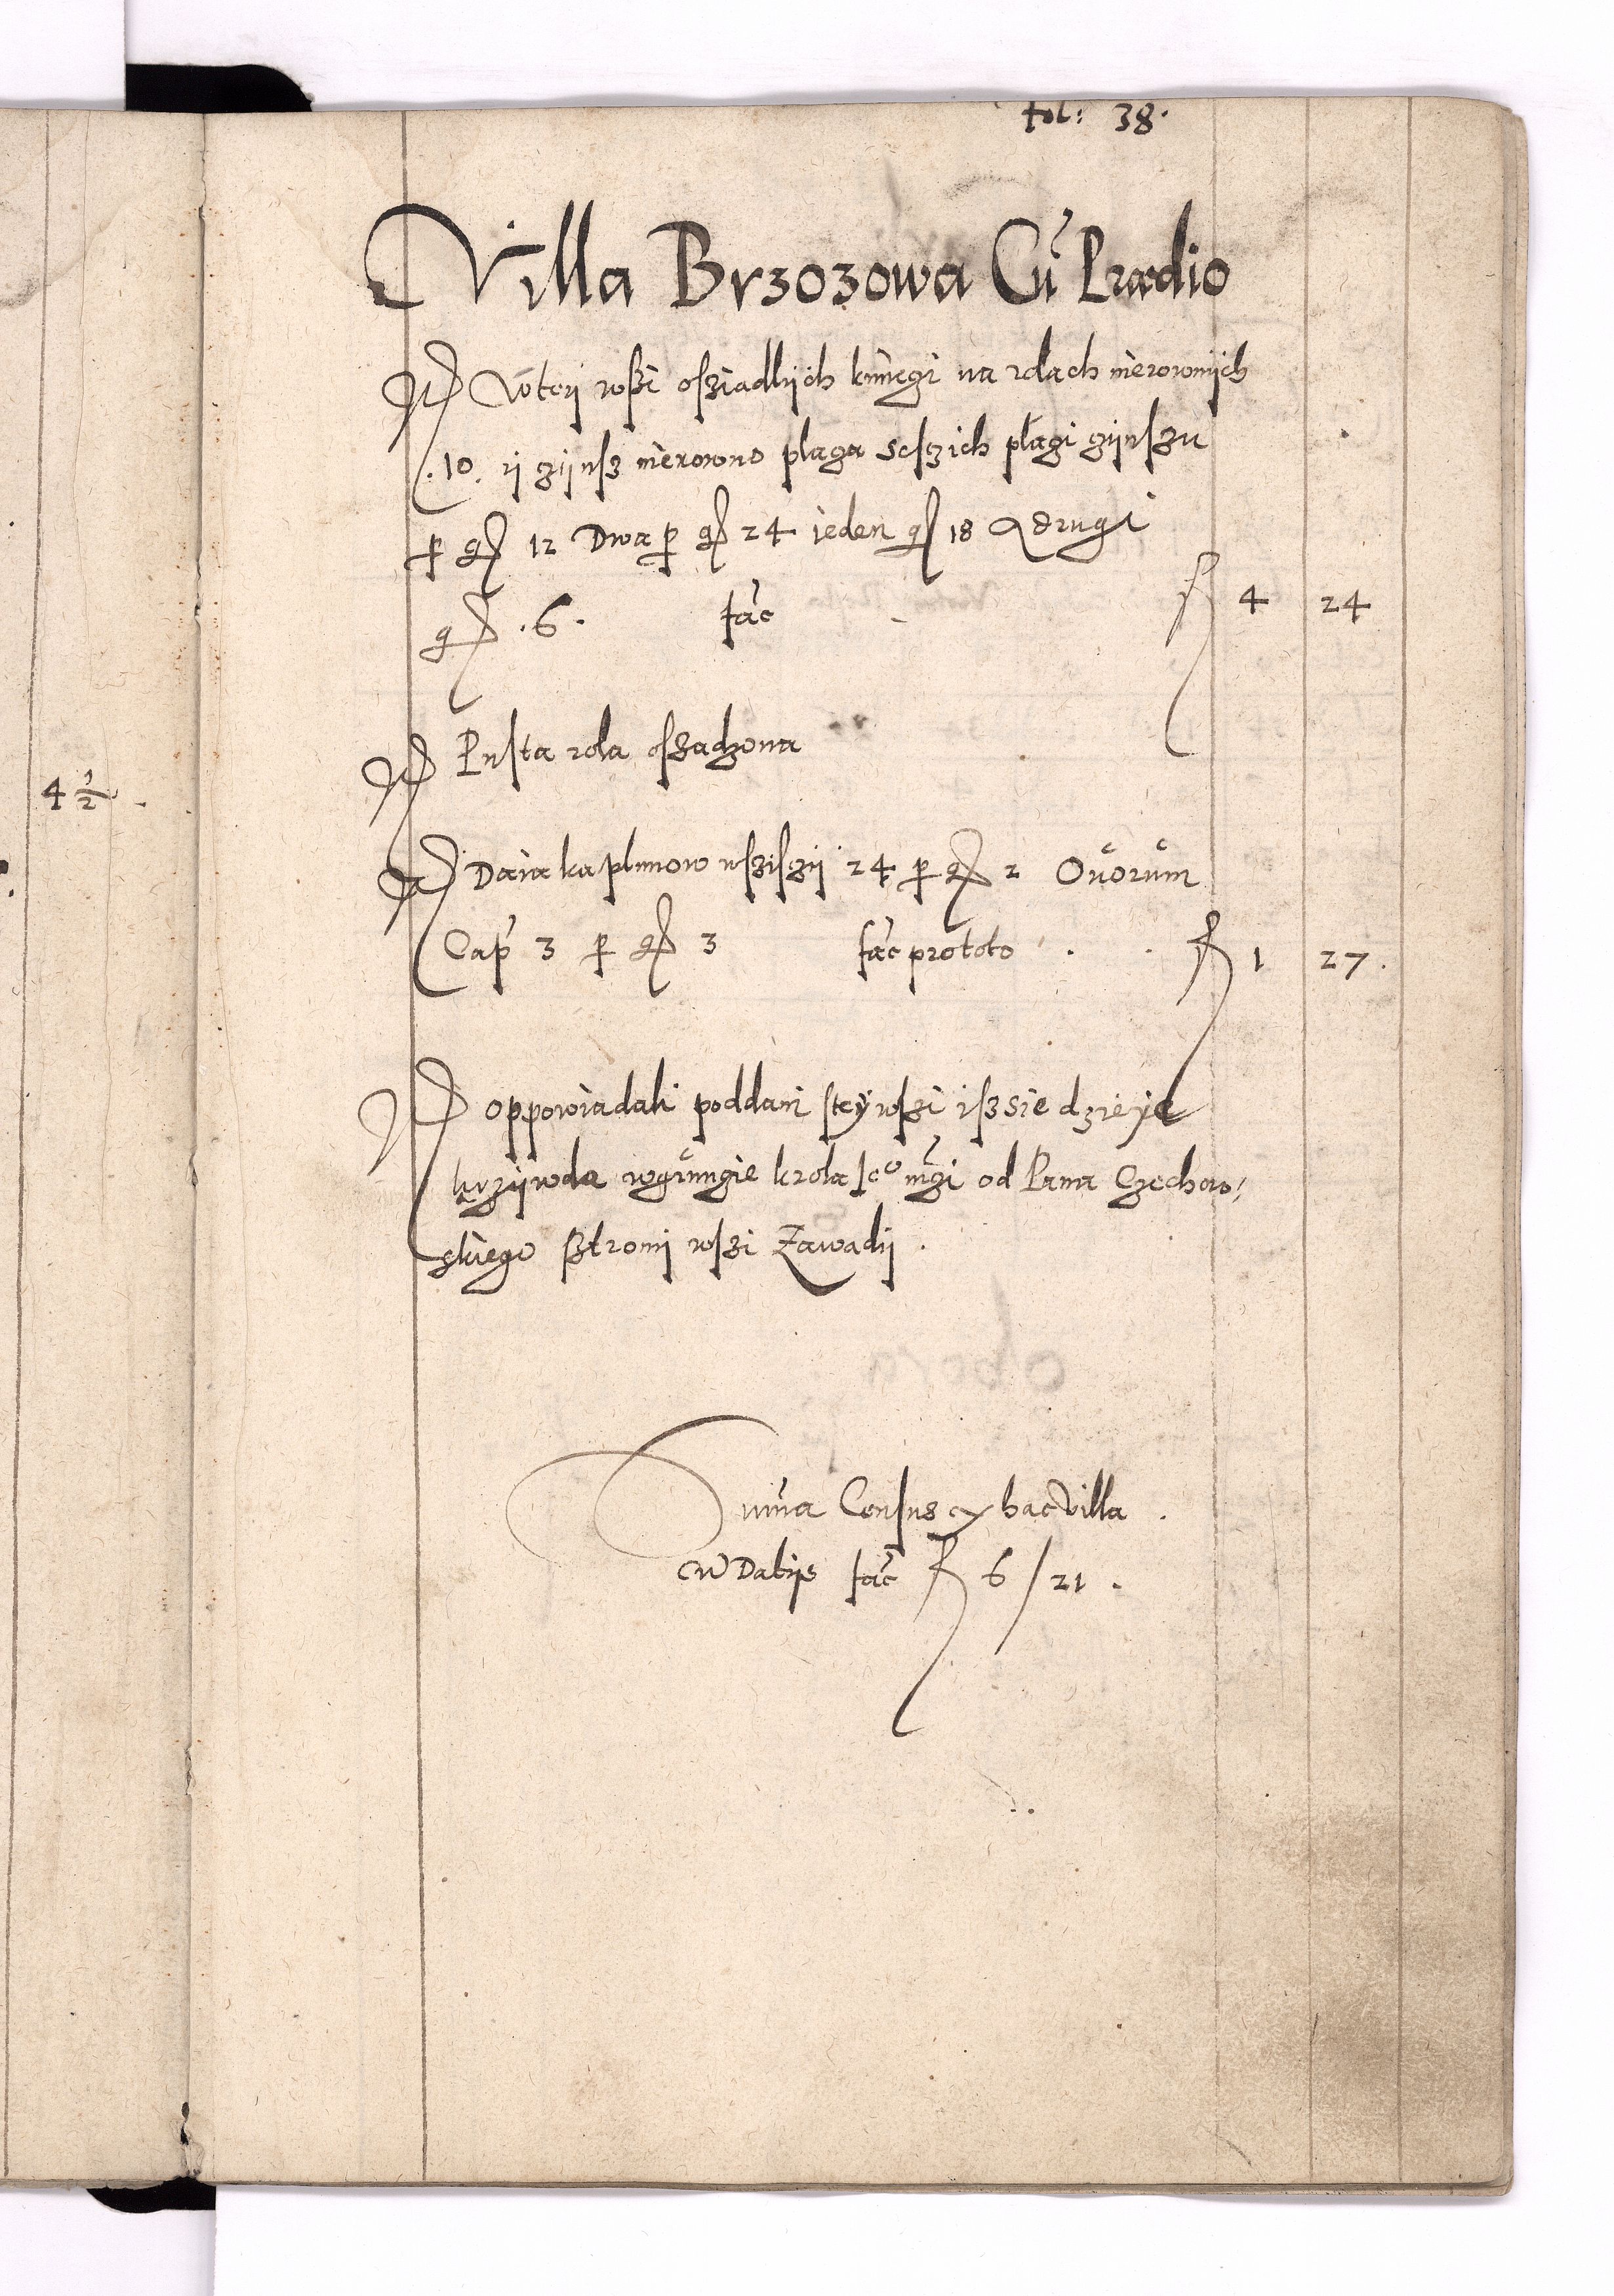 fol: 38.
Villa Brzozowa Cū Prædio
W tey wsi osziadlych kmiegi na rolach nierownych
.10. y zijnsz nierowno placa seszich placi zijnszu
p gr 12 Dwa p gr 24 ieden gr 18 A drugi
gr .6. fac̄ f 4 24
It Pusta rola oszadzona
4 ½
It Daia kaplunow wsziszij 24 p gr 2 Ovorum
Cap 3 p gr 3 fac̄ pro toto f 1 27.
It oppowiadali poddani stey wszi isz sie dzieye
krzijwda wgrungie krola Ico mgi od Pana Czechow-
skiego sztroni wszi Zawadij.
Summa Census ex hac Villa
cū Datijs fac̄ f 6 / 21.